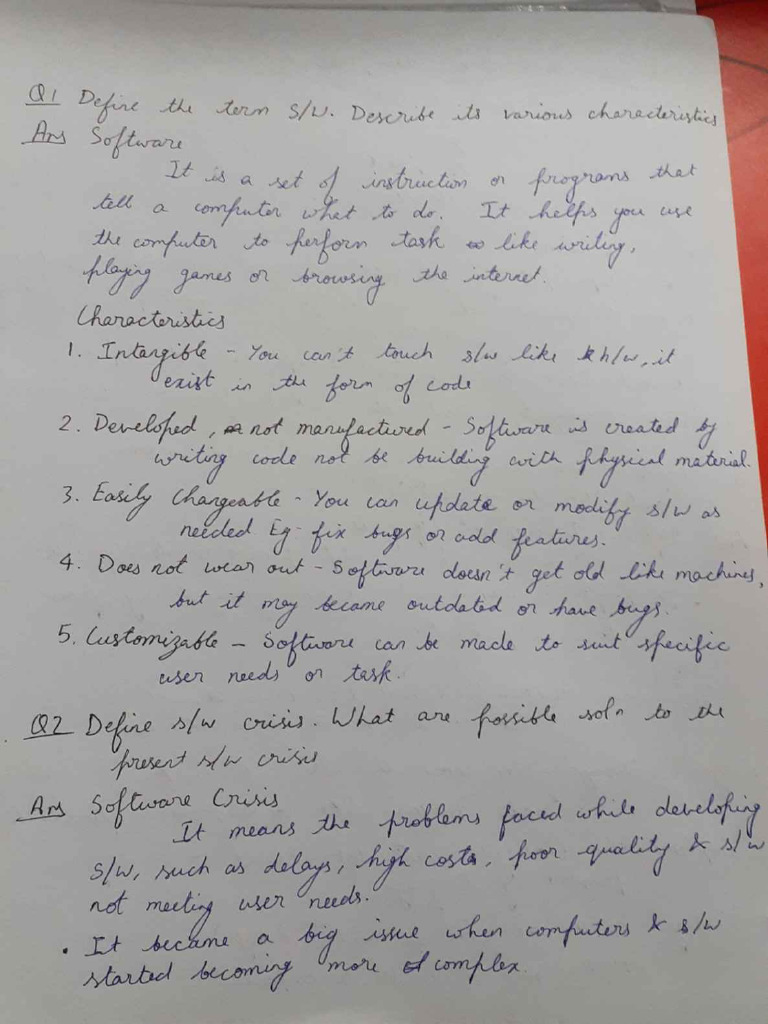 Q1 Define the term S/W. Describe its various characteristics
Ans Software
It is a set of instruction or programs that
tell a computer what to do. It helps you use
the computer to perform task like writing,
playing games or browsing the internet.
Characteristics
1. Intangible - You can't touch s/w like h/w, it
exist in the form of code
2. Developed, not manufactured - Software is created by
writing code not be building with physical material.
3. Easily Changeable - You can update or modify s/w as
needed Eg - fix bugs or add features.
4. Does not wear out - Software doesn't get old like machines,
but it may became outdated or have bugs.
5. Customizable - Software can be made to suit specific
user needs or task.
Q2 Define s/w crisis. What are possible soln to the
present s/w crisis
Ans Software Crisis
It means the problems faced while developing
S/W, such as delays, high costs, poor quality & s/w
not meeting user needs.
• It became a big issue when computers & s/w
started becoming more complex